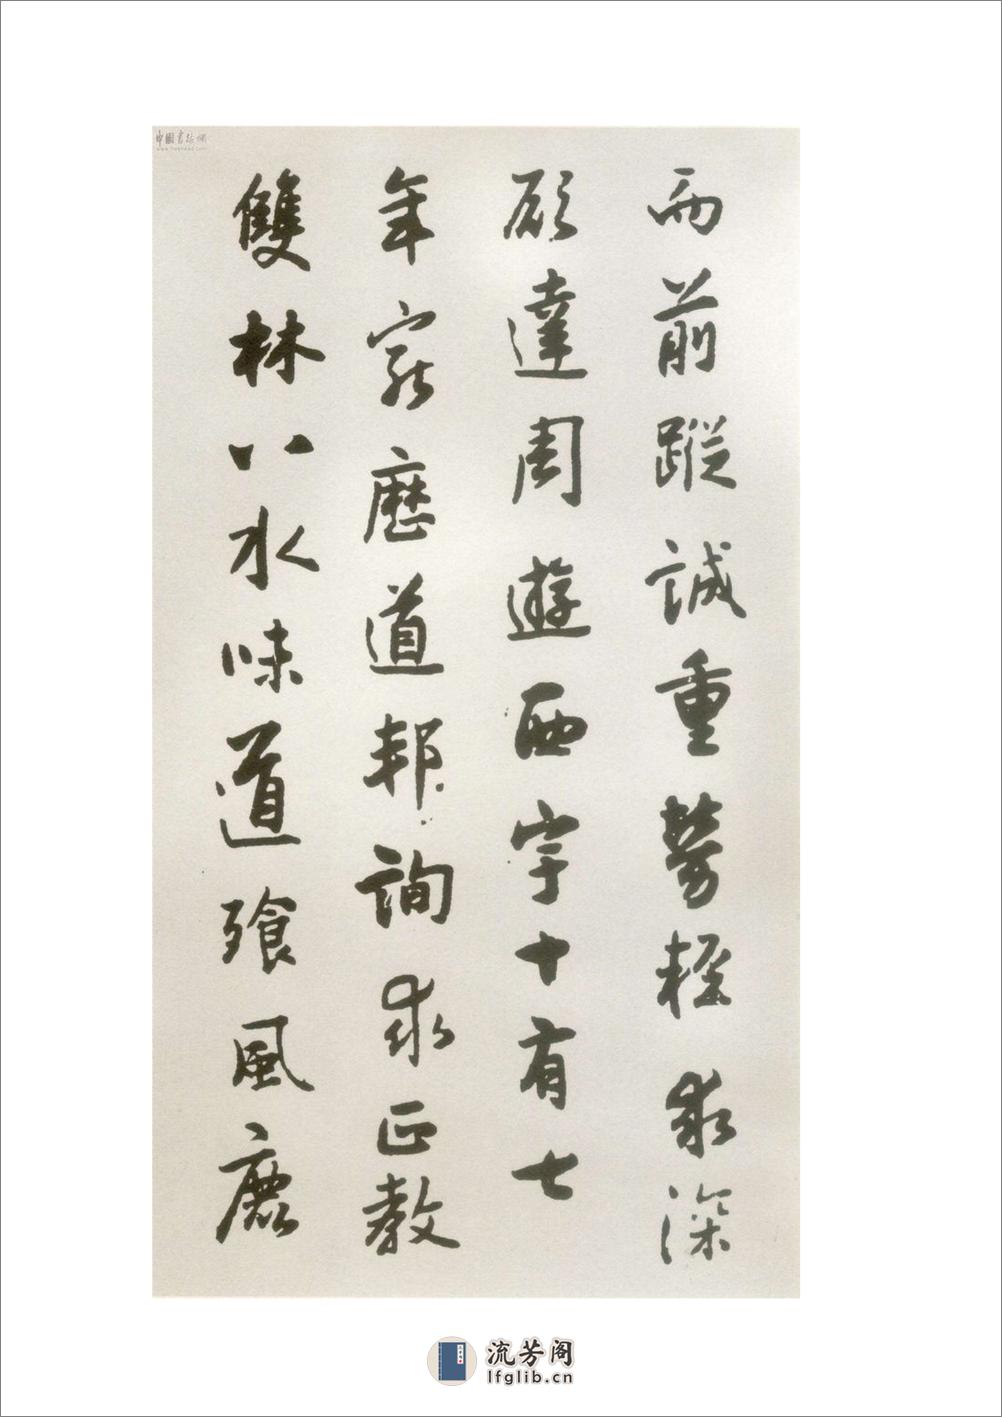 中國書法網
而前蹤誠重勞輕求深
願達周遊西宇十有七
年窮歷道邦詢求正教
雙林八水味道飱風鹿
流芳阁
lfglib.cn